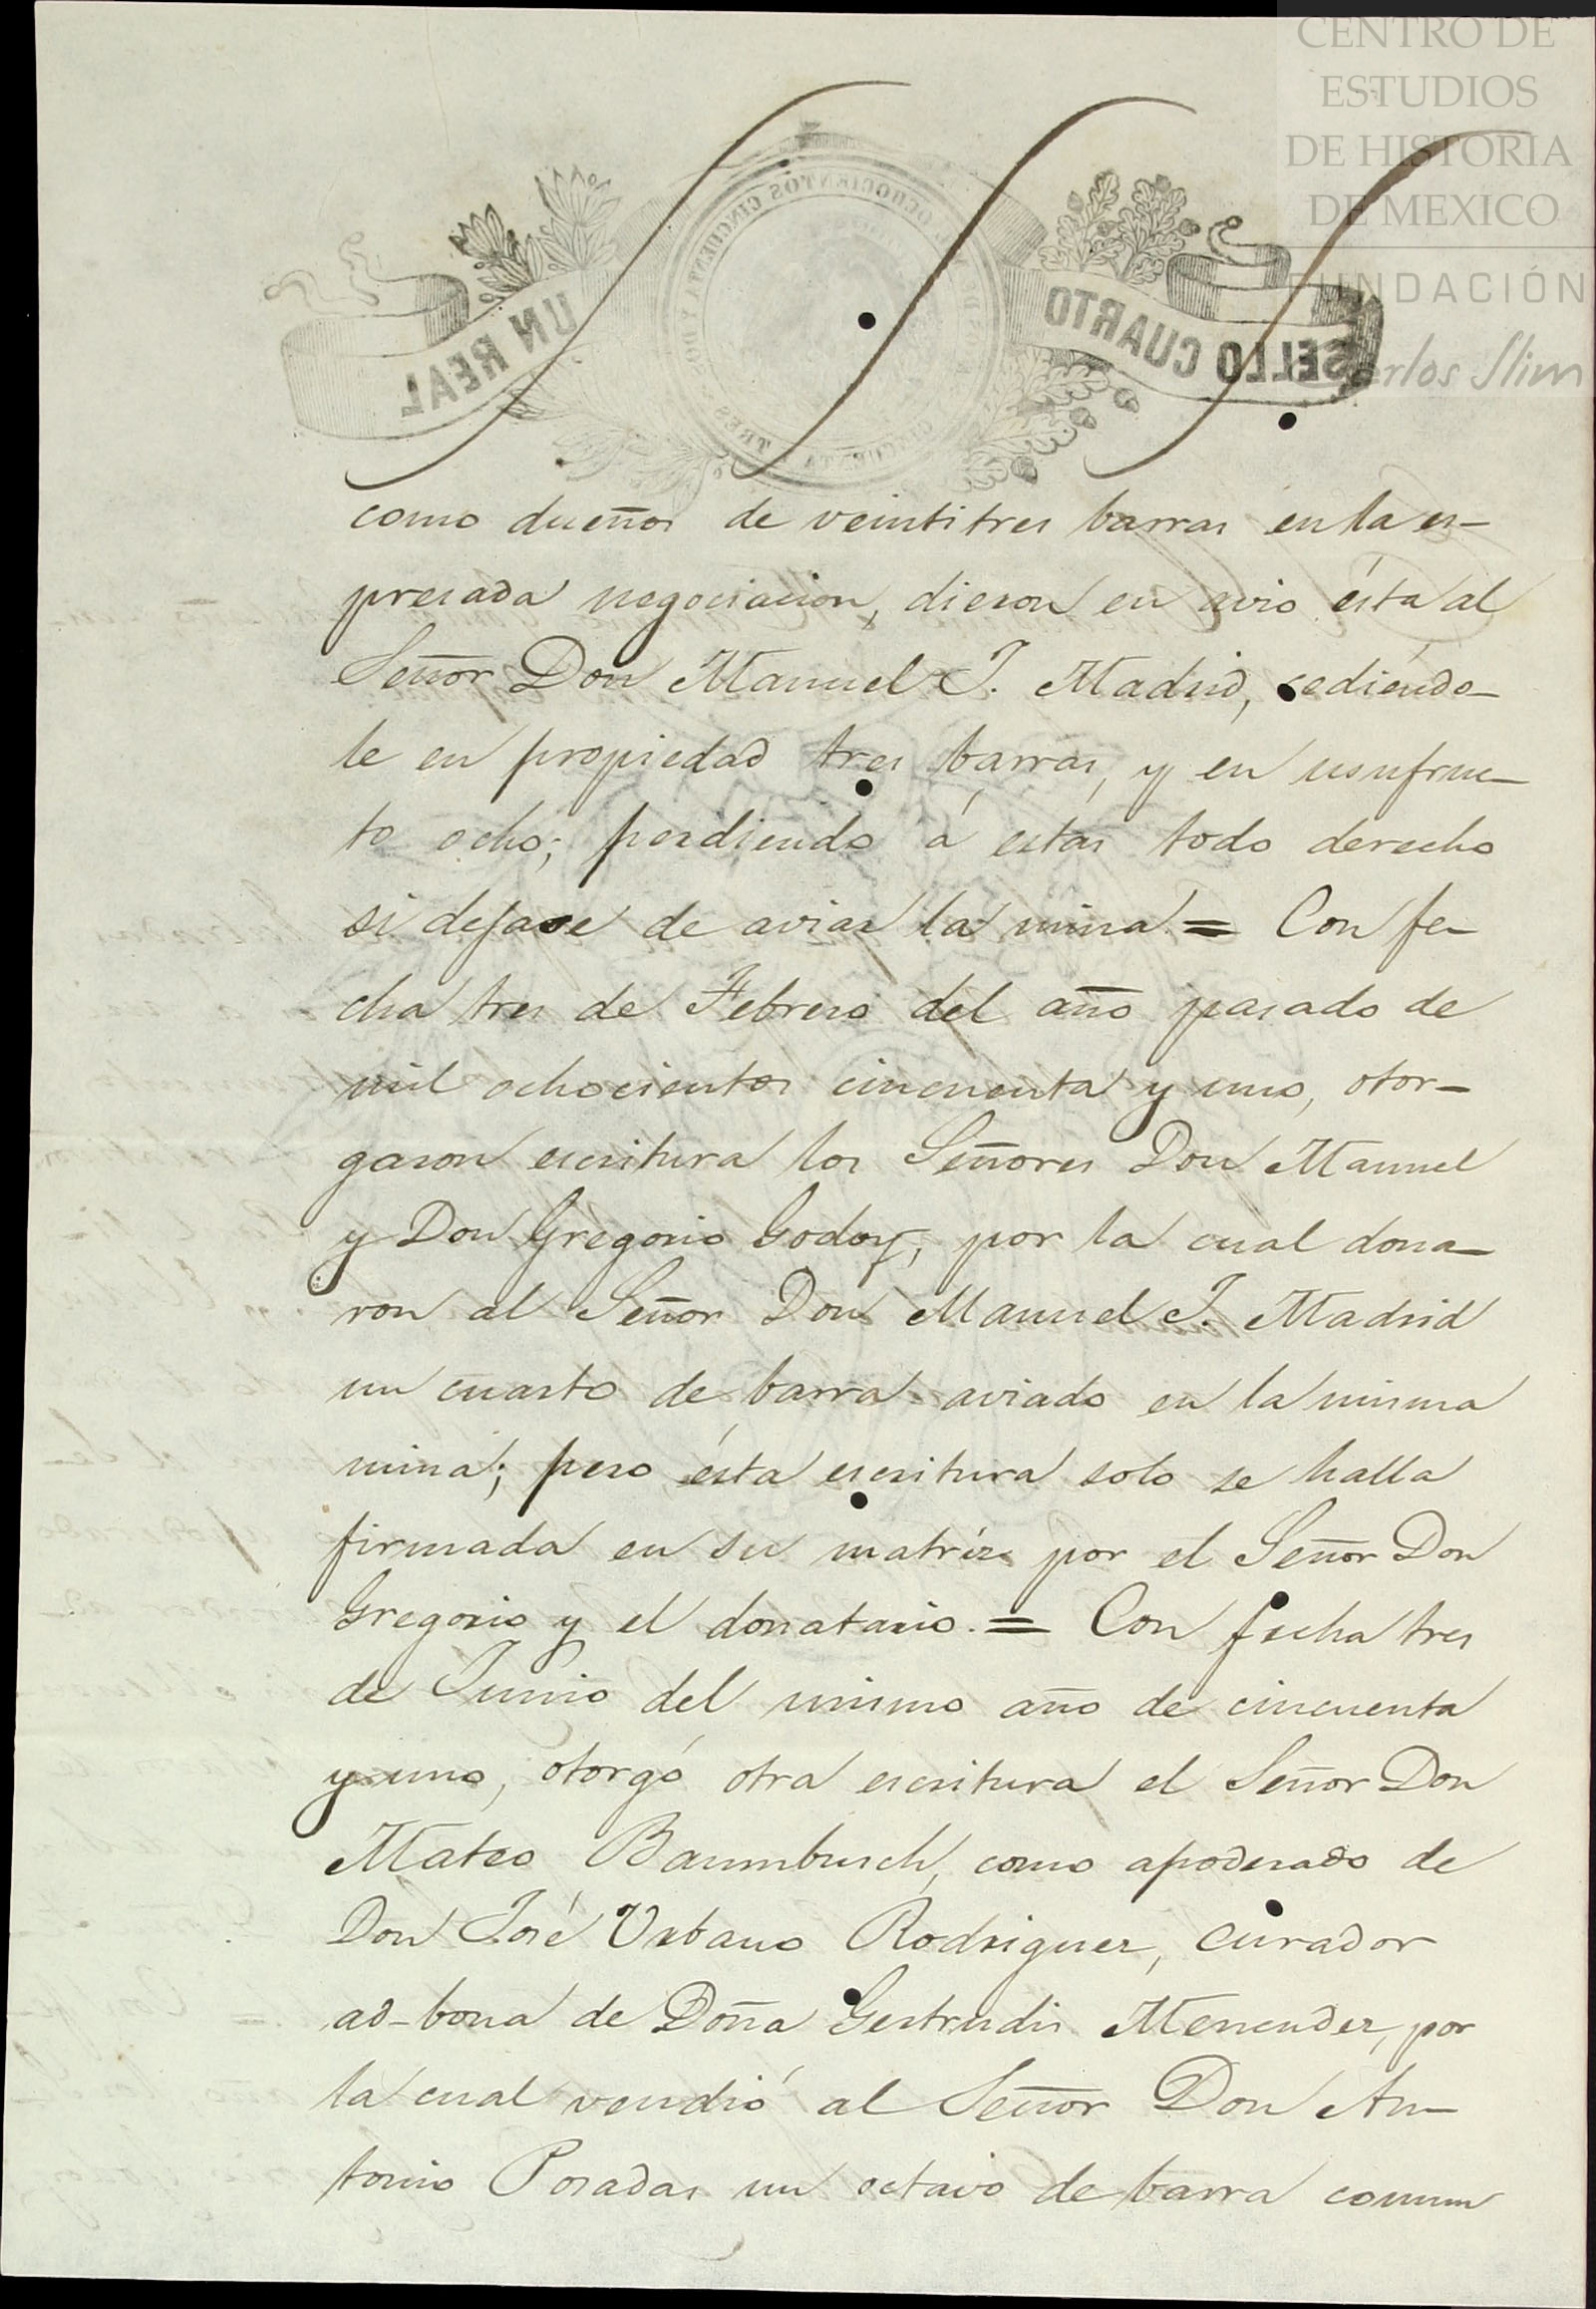 CENTRO DE
ESTUDIOS
DE HISTORIA
DE MEXICO
FUNDACIÓN
Carlos Slim
UN REAL
SELLO CUARTO
como dueños de veintitres barras en la es-
presada negociacion, dieron en avio ésta al
Señor Don Manuel J. Madrid, cediéndo-
le en propiedad tres barras, y en usufruc-
to ocho; perdiendo á estas todo derecho
si dejase de aviar la mina. = Con fe-
cha tres de Febrero del año pasado de
mil ochocientos cincuenta y uno, otor-
garon escritura los Señores Don Manuel
y Don Gregorio Godoy, por la cual dona-
ron al Señor Don Manuel J. Madrid
un cuarto de barra aviado en la misma
mina; pero ésta escritura solo se halla
firmada en su matríz por el Señor Don
Gregorio y el donatario. = Con fecha tres
de Junio del mismo año de cincuenta
y uno, otorgó otra escritura el Señor Don
Mateo Baumbusch, como apoderado de
Don José Urbano Rodriguez, curador
ad-bona de Doña Gertrudis Menendez, por
la cual vendió al Señor Don An-
tonio Posadas un octavo de barra comun